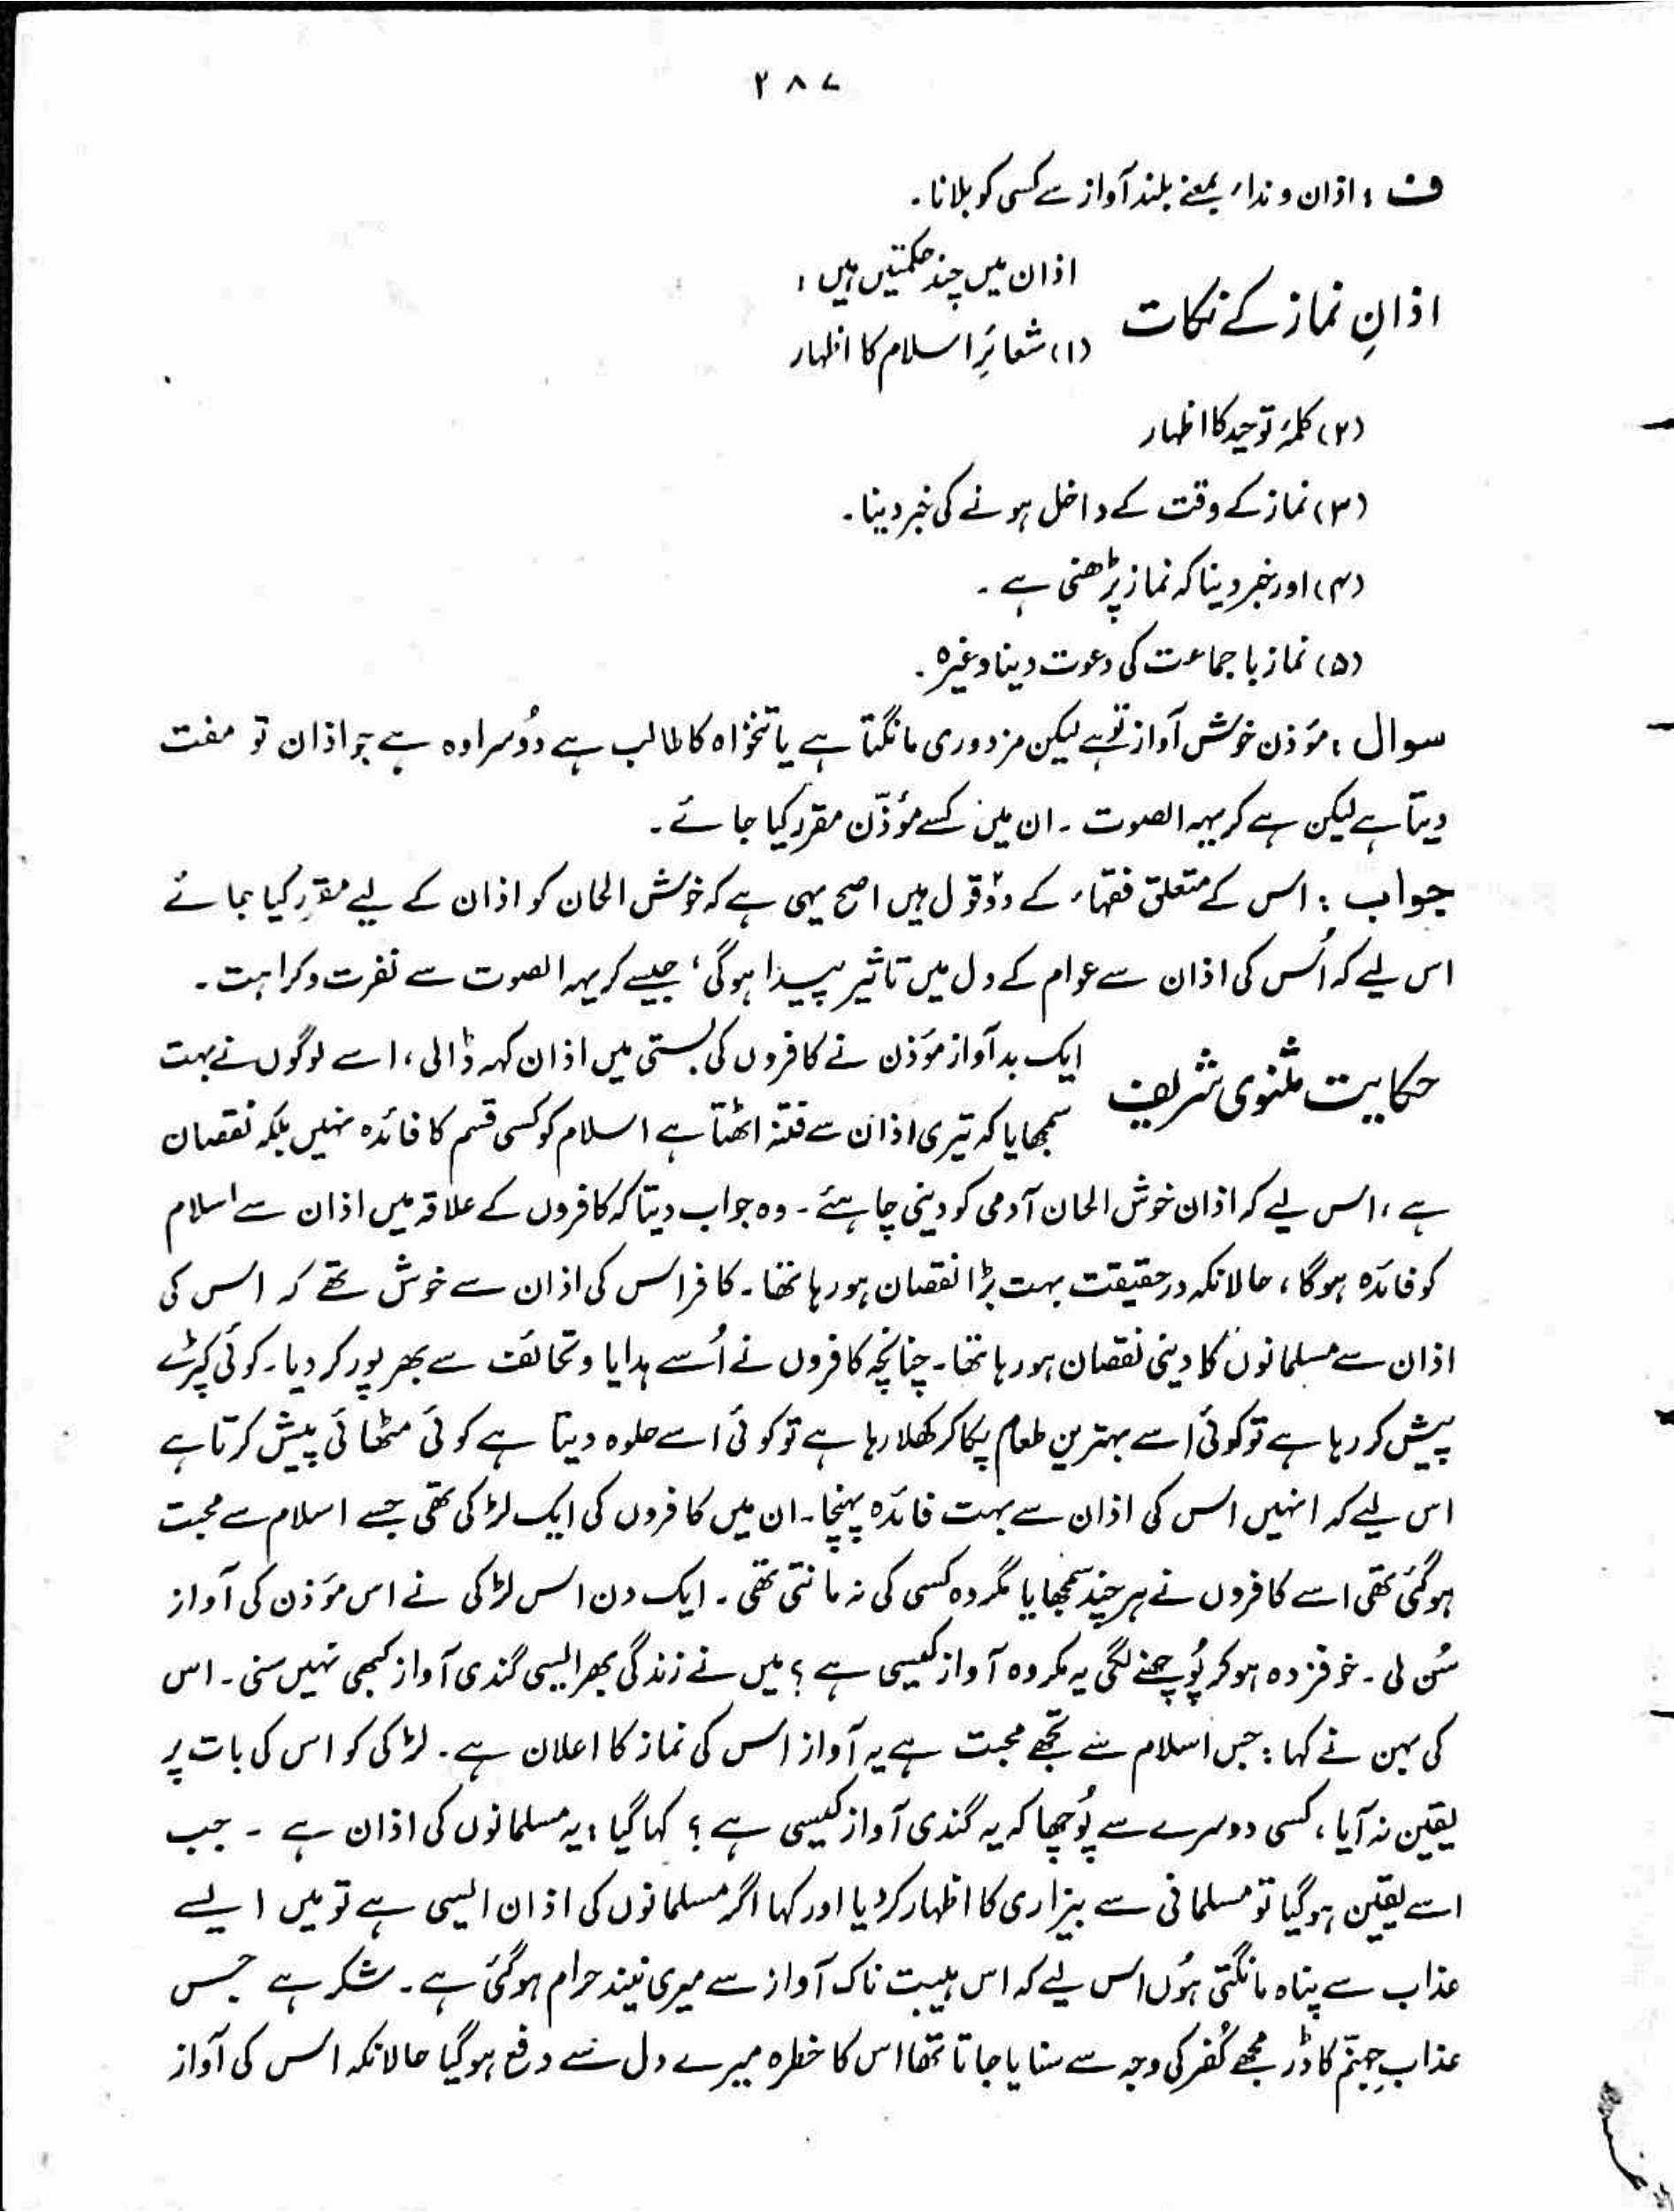 ۲۸۷
ف : اذان و نداء بمعنے بلند آواز سے کسی کو بلانا۔
اذانِ نماز کے نکات
اذان میں چند حکمتیں ہیں :
(۱) شعائرِ اسلام کا اظہار
(۲) کلمۂ توحید کا اظہار
(۳) نماز کے وقت کے داخل ہونے کی خبر دینا۔
(۴) اور خبر دینا کہ نماز پڑھنی ہے۔
(۵) نماز با جماعت کی دعوت دینا وغیرہ۔
سوال : مؤذن خوش آواز تو ہے لیکن مزدوری مانگتا ہے یا تنخواہ کا طالب ہے دُوسرا وہ ہے جو اذان تو مفت
دیتا ہے لیکن ہے کریہہ الصوت۔ ان میں کسے مؤذّن مقرر کیا جائے۔
جواب : اس کے متعلق فقہاء کے دوؔ قول ہیں اصح یہی ہے کہ خوش الحان کو اذان کے لیے مقرر کیا جائے
اس لیے کہ اُس کی اذان سے عوام کے دل میں تاثیر پیدا ہوگی، جیسے کریہہ الصوت سے نفرت و کراہت۔
حکایت مثنوی شریف
ایک بدآواز مؤذن نے کافروں کی بستی میں اذان کہہ ڈالی، اسے لوگوں نے بہت
سمجھایا کہ تیری اذان سے فتنہ اٹھتا ہے اسلام کو کسی قسم کا فائدہ نہیں بلکہ نقصان
ہے، اس لیے کہ اذان خوش الحان آدمی کو دینی چاہئے۔ وہ جواب دیتا کہ کافروں کے علاقہ میں اذان سے اسلام
کو فائدہ ہوگا، حالانکہ درحقیقت بہت بڑا نقصان ہو رہا تھا۔ کافر اس کی اذان سے خوش تھے کہ اس کی
اذان سے مسلمانوں کا دینی نقصان ہو رہا تھا۔ چنانچہ کافروں نے اُسے ہدایا و تحائف سے بھرپور کر دیا۔ کوئی کپڑے
پیش کر رہا ہے تو کوئی اسے بہترین طعام پکا کر کھلا رہا ہے تو کوئی اسے حلوہ دیتا ہے کوئی مٹھائی پیش کرتا ہے
اس لیے کہ انہیں اس کی اذان سے بہت فائدہ پہنچا۔ ان میں کافروں کی ایک لڑکی تھی جسے اسلام سے محبت
ہوگئی تھی اسے کافروں نے ہر چند سمجھایا مگر وہ کسی کی نہ مانتی تھی۔ ایک دن اس لڑکی نے اس مؤذن کی آواز
سُن لی۔ خوفزدہ ہو کر پُوچھنے لگی یہ مکروہ آواز کیسی ہے ؟ میں نے زندگی بھر ایسی گندی آواز کبھی نہیں سنی۔ اس
کی بہن نے کہا : جس اسلام سے تجھے محبت ہے یہ آواز اس کی نماز کا اعلان ہے۔ لڑکی کو اس کی بات پر
یقین نہ آیا، کسی دوسرے سے پُوچھا کہ یہ گندی آواز کیسی ہے ؟ کہا گیا : یہ مسلمانوں کی اذان ہے ۔ جب
اسے یقین ہوگیا تو مسلمانی سے بیزاری کا اظہار کر دیا اور کہا اگر مسلمانوں کی اذان ایسی ہے تو میں ایسے
عذاب سے پناہ مانگتی ہُوں اس لیے کہ اس ہیبت ناک آواز سے میری نیند حرام ہوگئی ہے۔ شکر ہے جس
عذابِ جہنّم کا ڈر مجھے کُفر کی وجہ سے سنایا جاتا تھا اس کا خطرہ میرے دل سے دفع ہوگیا حالانکہ اس کی آواز